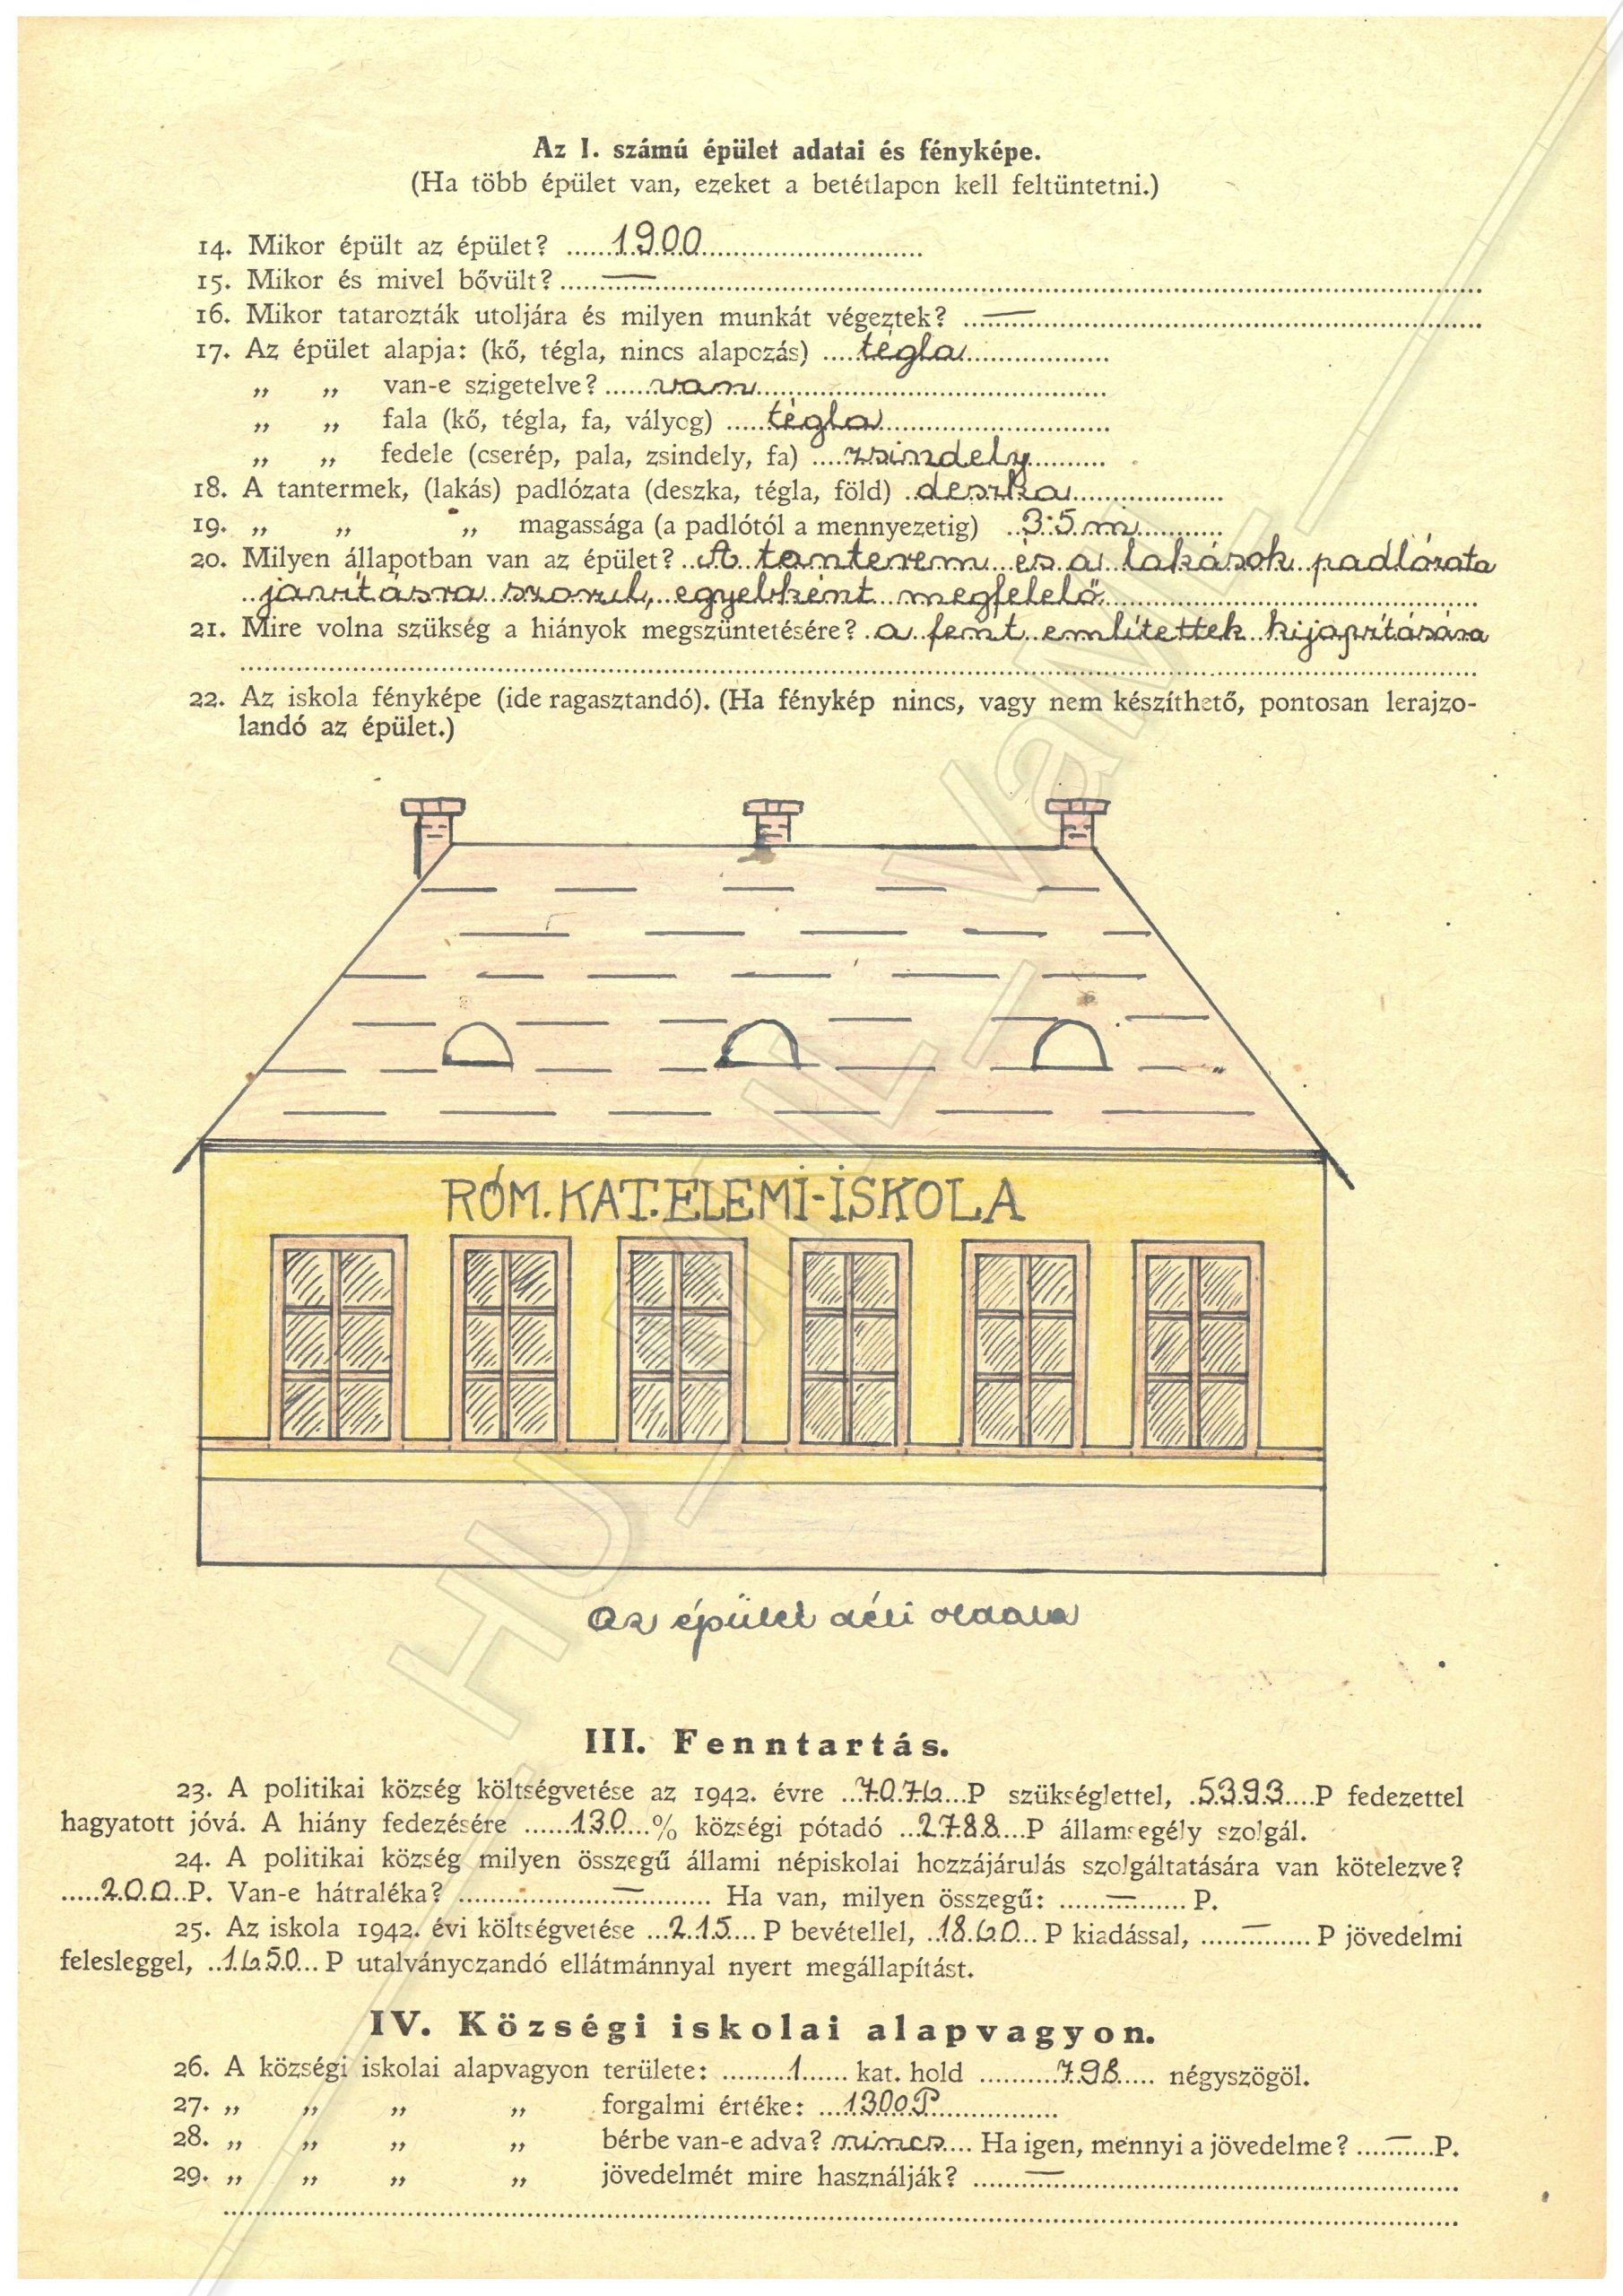 Az I. számú épület adatai és fényképe.
(Ha több épület van, ezeket a betétlapon kell feltüntetni.)
14. Mikor épült az épület? 1900
15. Mikor és mivel bővült? —
16. Mikor tatarozták utoljára és milyen munkát végeztek? —
17. Az épület alapja: (kő, tégla, nincs alapozás) tégla
„ „ van-e szigetelve? van
„ „ fala (kő, tégla, fa, vályog) tégla
„ „ fedele (cserép, pala, zsindely, fa) zsindely
18. A tantermek, (lakás) padlózata (deszka, tégla, föld) deszka
19. „ „ „ magassága (a padlótól a mennyezetig) 3·5 m
20. Milyen állapotban van az épület? A tanterem és a lakások padlózata
javításra szorul, egyebként megfelelő.
21. Mire volna szükség a hiányok megszüntetésére? a fent említettek kijavítására
22. Az iskola fényképe (ide ragasztandó). (Ha fénykép nincs, vagy nem készíthető, pontosan lerajzo-
landó az épület.)
RÓM. KAT. ELEMI-ISKOLA
Az épület déli oldala
III. Fenntartás.
23. A politikai község költségvetése az 1942. évre 7076 P szükséglettel, 5393 P fedezettel
hagyatott jóvá. A hiány fedezésére 130 % községi pótadó 2788 P államsegély szolgál.
24. A politikai község milyen összegű állami népiskolai hozzájárulás szolgáltatására van kötelezve?
200 P. Van-e hátraléka? — Ha van, milyen összegű: — P.
25. Az iskola 1942. évi költségvetése 215 P bevétellel, 1860 P kiadással, — P jövedelmi
felesleggel, 1650 P utalványozandó ellátmánnyal nyert megállapítást.
IV. Községi iskolai alapvagyon.
26. A községi iskolai alapvagyon területe: 1 kat. hold 798 négyszögöl.
27. „ „ „ „ forgalmi értéke: 1300 P
28. „ „ „ „ bérbe van-e adva? nincs Ha igen, mennyi a jövedelme? — P.
29. „ „ „ „ jövedelmét mire használják? —
HU_MNL_VaML_